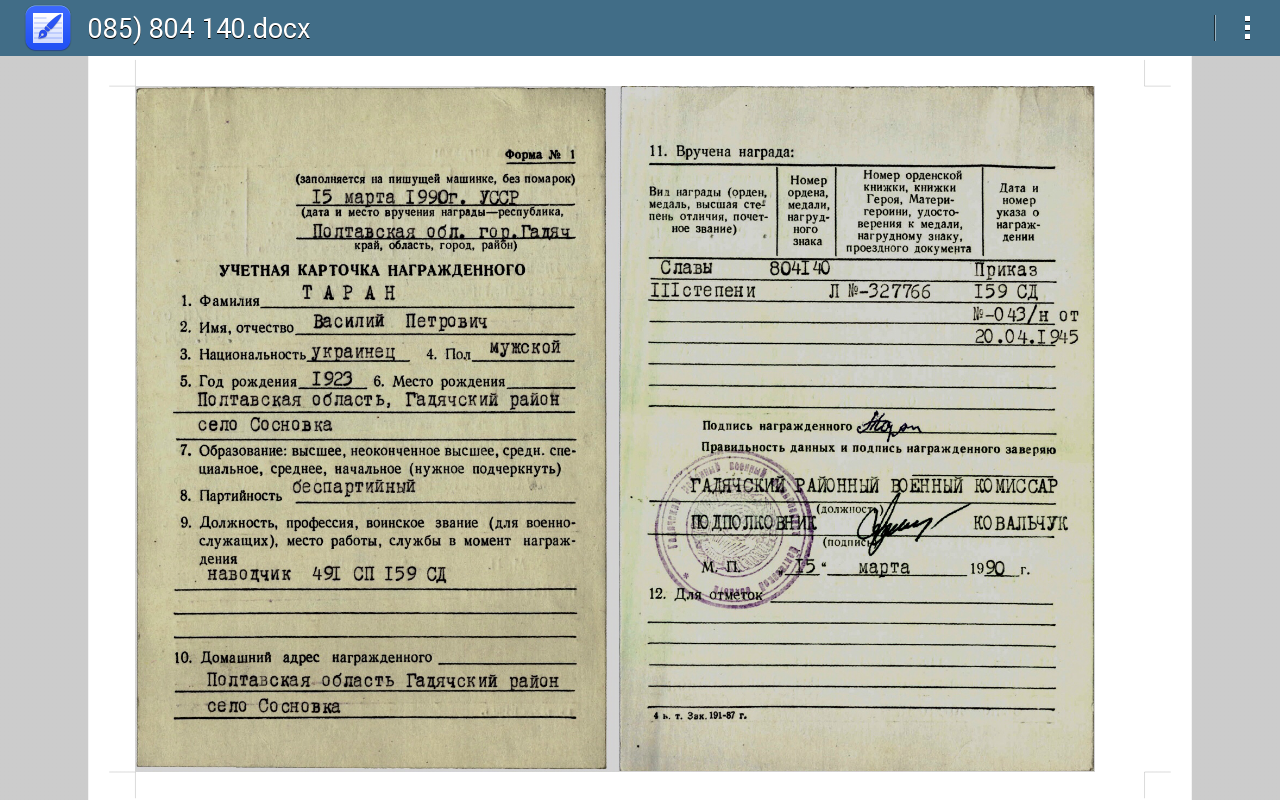 085) 804 140.docx
Форма № 1
(заполняется на пишущей машинке, без помарок)
I5 марта I990г. УССР
(дата и место вручения награды—республика,
Полтавская обл. гор.Гадяч
край, область, город, район)
УЧЕТНАЯ КАРТОЧКА НАГРАЖДЕННОГО
1. Фамилия ТАРАН
2. Имя, отчество Василий Петрович
3. Национальность украинец 4. Пол мужской
5. Год рождения I923 6. Место рождения
Полтавская область, Гадячский район
село Сосновка
7. Образование: высшее, неоконченное высшее, средн. спе-
циальное, среднее, начальное (нужное подчеркнуть)
8. Партийность беспартийный
9. Должность, профессия, воинское звание (для военно-
служащих), место работы, службы в момент награж-
дения
наводчик 49I СП I59 СД
10. Домашний адрес награжденного
Полтавская область Гадячский район
село Сосновка
11. Вручена награда:
Вид награды (орден,
медаль, высшая сте-
пень отличия, почет-
ное звание)
Номер
ордена,
медали,
нагруд-
ного
знака
Номер орденской
книжки, книжки
Героя, Матери-
героини, удосто-
верения к медали,
нагрудному знаку,
проездного документа
Дата и
номер
указа о
награж-
дении
Славы 804I40 Приказ
IIIстепени Л №-327766 I59 СД
№-043/н от
20.04.I945
Подпись награжденного Таран
Правильность данных и подпись награжденного заверяю
ГАДЯЧСКИЙ РАЙОННЫЙ ВОЕННЫЙ КОМИССАР
(должность)
ПОДПОЛКОВНИК КОВАЛЬЧУК
(подпись)
М. П. I5 " марта 1990 г.
12. Для отметок
4 н. т. Зак. 191-87 г.